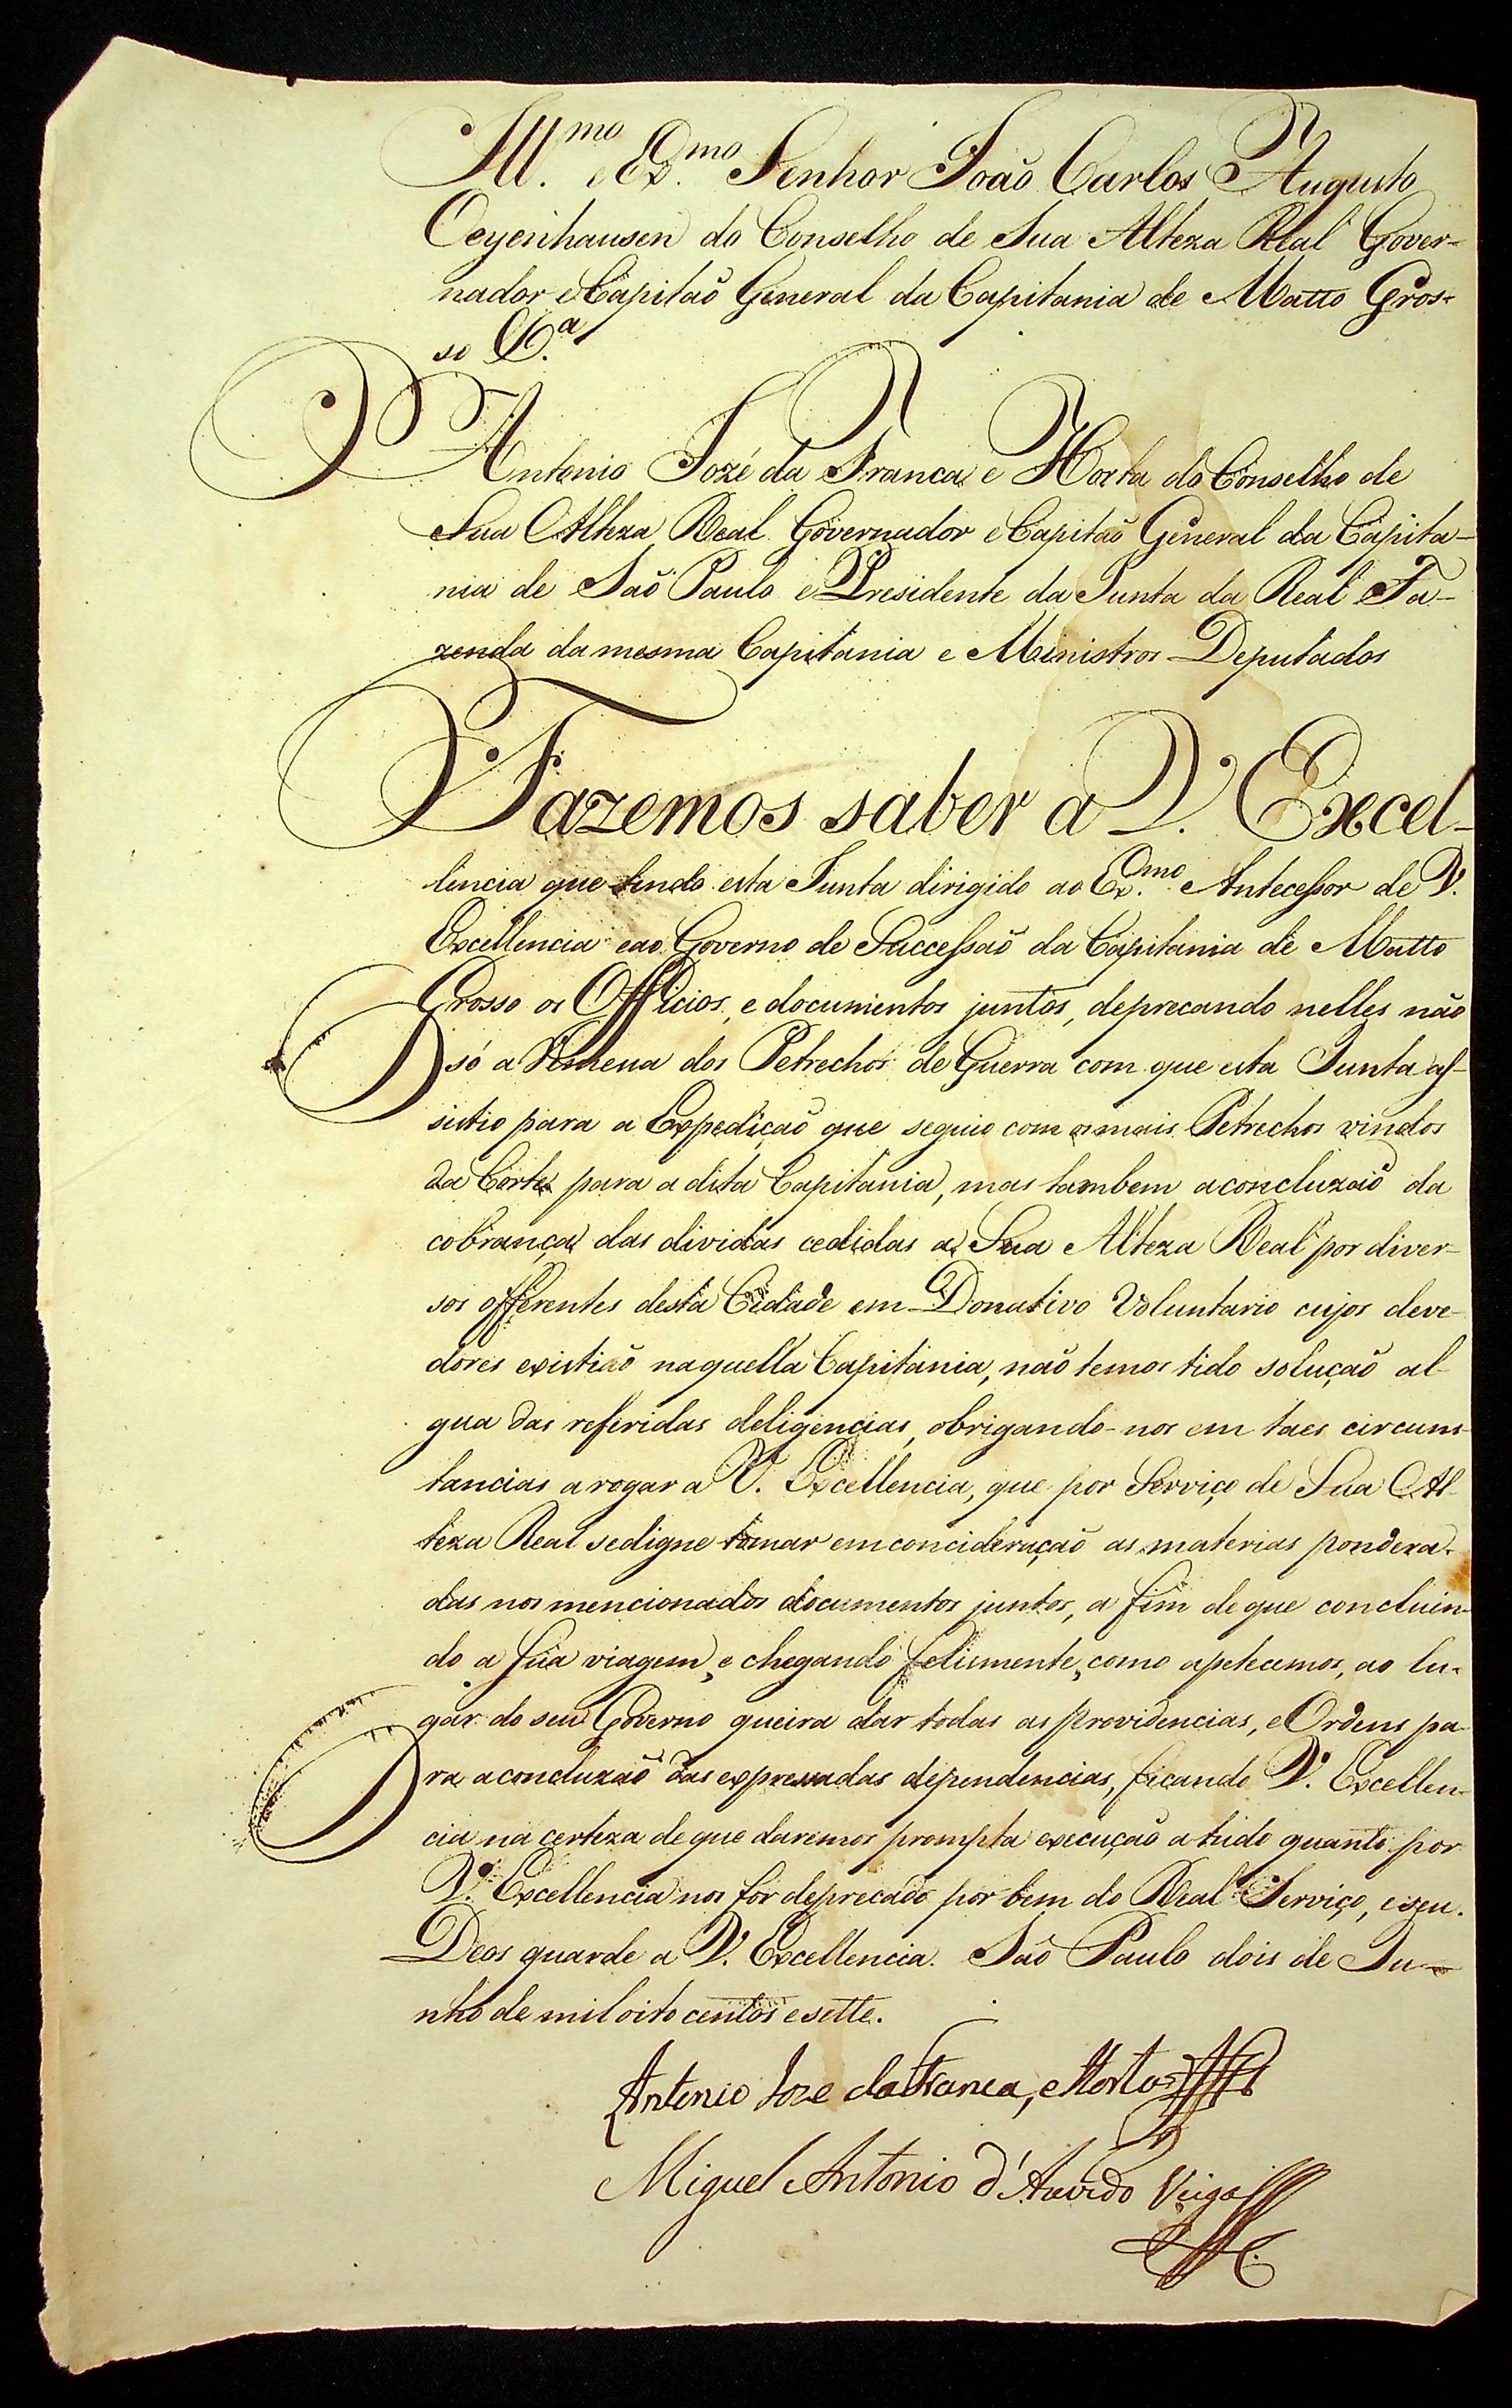 Ill.mo e Ex.mo Senhor João Carlos Augusto
Oeyenhausen do Conselho de Sua Alteza Real Gover-
nador e Capitaõ General da Capitania de Matto Gros-
so &.a
Antonio Jozé da Franca e Horta do Conselho de
Sua Alteza Real Governador e Capitaõ General da Capita-
nia de Saõ Paulo e Presidente da Junta da Real Fa-
zenda da mesma Capitania e Ministros Deputados
Fazemos saber a V. Excel-
lencia que tendo esta Junta dirigido ao Ex.mo Antecessor de V.
Excellencia e ao Governo de Successaõ da Capitania de Matto
Grosso os Officios, e documentos juntos, deprecando nelles não
só a Remessa dos Petrechos de Guerra com que esta Junta as-
sistio para a Expediçaõ que seguio com os mais Petrechos vindos
da Corte para a dita Capitania, mas tambem a concluzaõ da
cobrança das dividas cedidas a Sua Alteza Real por diver-
sos offerentes desta Cidade em Donativo Voluntario cujos deve-
dores existiaõ naquella Capitania, naõ temos tido soluçaõ al-
gua das referidas deligencias, obrigando-nos em taes circuns-
tancias a rogar a V. Excellencia, que por Serviço de Sua Al-
teza Real se digne tomar em concideraçaõ as materias pondera-
das nos mencionados documentos juntos, a fim de que concluin-
do a sua viagem, e chegando felismente, como apetecemos, ao lu-
gar do seu Governo queira dar todas as providencias, e Ordens pa-
ra a concluzaõ das expressadas dependencias, ficando V. Excellen-
cia na certeza de que daremos prompta execuçaõ a tudo quanto por
V. Excellencia nos for deprecado por bem do Real Serviço, e seu.
Deos guarde a V. Excellencia. Saõ Paulo dois de Ju-
nho de mil oito centos e sette.
Antonio Joze da Franca, e Horta
Miguel Antonio d'Azevedo Veiga